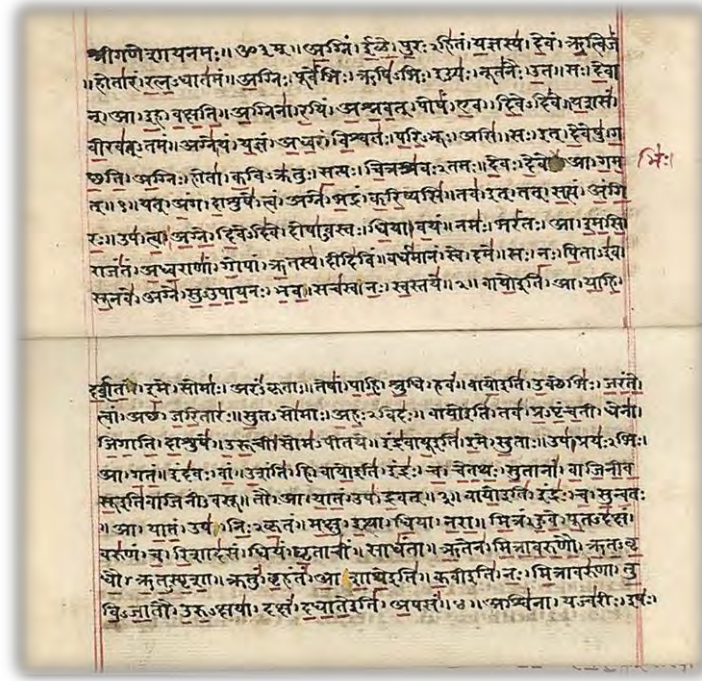 श्रीगणेशायनमः॥ॐ३म्॥अग्निं। ईळे। पुरःऽहितं। यज्ञस्य। देवं। ऋत्विजं
॥होतारं। रत्नऽधातमं॥अग्निः। पूर्वेभिः। ऋषिऽभिः। ईड्यः। नूतनैः। उत॥सः। देवा
न्। आ। इह। वक्षति॥अग्निना। रयिं। अश्नवत्। पोषं। एव। दिवेऽदिवे॥यशसं
वीरवत्ऽतमं॥अग्ने। यं। यज्ञं। अध्वरं। विश्वतः। परिऽभूः। असि॥सः। इत्। देवेषु। ग
च्छति॥अग्निः। होता। कविऽक्रतुः। सत्यः। चित्रश्रवःऽतमः॥देवः। देवे आ। गम भिः।
त्॥१॥यत्। अंग। दाशुषे। त्वं। अग्ने। भद्रं। करिष्यसि॥तव। इत्। तत्। सत्यं। अंगि
रः॥उप। त्वा। अग्ने। दिवेऽदिवे। दोषाऽवस्तः। धिया। वयं॥नमः। भरंतः। आ। इमसि
राजंतं। अध्वराणां। गोपां। ऋतस्य। दीदिविं॥वर्धमानं। स्वे। दमे॥सः। नः। पिताऽइव।
सूनवे। अग्ने। सुऽउपायनः। भव॥सचस्व। नः। स्वस्तये॥२॥वायोइति। आ। याहि।
दर्शत। इमे। सोमाः। अरंऽकृताः॥तेषां। पाहि। श्रुधि। हवं॥वायोइति। उक्थेभिः। जरंते।
त्वां। अच्छ। जरितारः॥सुतऽसोमाः। अहःऽविदः॥वायोइति। तव। प्रऽपृंचती। धेना।
जिगाति। दाशुषे॥उरूची। सोमऽपीतये॥इंद्रवायूइति। इमे। सुताः॥उप। प्रयःऽभिः।
आ। गतं॥इंदवः। वां। उशंति। हि॥वायोइति। इंद्रः। च। चेतथः। सुतानां। वाजिनीव
सूइतिवाजिनीऽवसू॥तौ। आ। यातं। उप। द्रवत्॥३॥वायोइति। इंद्रः। च। सुन्वतः
॥आ। यातं। उप। निःऽकृतं॥मक्षु। इत्था। धिया। नरा॥मित्रं। हुवे। पूतऽदक्षं।
वरुणं। च। रिशादसं॥धियं। घृताचीं। साधंता॥ऋतेन। मित्रावरुणौ। ऋतऽवृ
धौ। ऋतऽस्पृशा॥क्रतुं। बृहंतं। आशाथेइति॥कवीइति। नः। मित्रावरुणा। तु
विऽजातौ। उरुऽक्षया॥दक्षं। दधातेइति। अपसं॥४॥अश्विना। यज्वरीः। इषः।